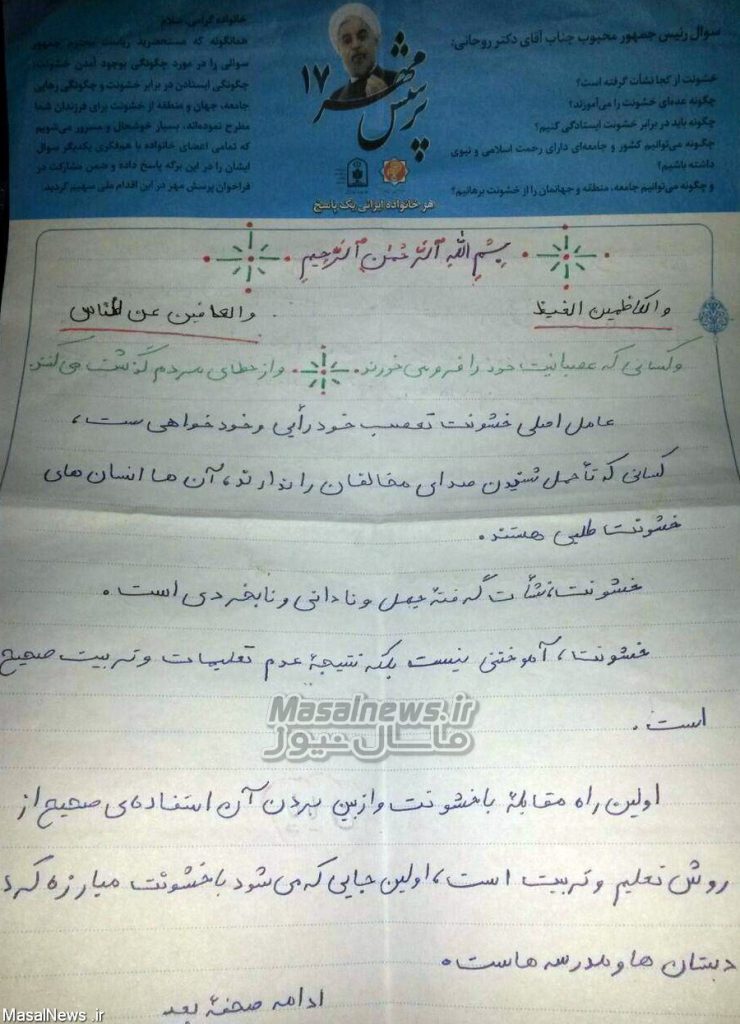 سوال رئیس جمهور محبوب جناب آقای دکتر روحانی:
خشونت از کجا نشأت گرفته است؟
چگونه عده‌ای خشونت را می‌آموزند؟
چگونه باید در برابر خشونت ایستادگی کنیم؟
چگونه می‌توانیم کشور و جامعه‌ای دارای رحمت اسلامی و نبوی
داشته باشیم؟
و چگونه می‌توانیم جامعه، منطقه و جهانمان را از خشونت برهانیم؟
پرسش مهر ۱۷
هر خانواده ایرانی یک پاسخ
خانواده گرامی، سلام
همانگونه که مستحضرید ریاست محترم جمهور
سوالی را در مورد چگونگی بوجود آمدن خشونت،
چگونگی ایستادن در برابر خشونت و چگونگی رهایی
جامعه، جهان و منطقه از خشونت برای فرزندان شما
مطرح نموده‌اند، بسیار خوشحال و مسرور می‌شویم
که تمامی اعضای خانواده با هم‌فکری یکدیگر سوال
ایشان را در این برگه پاسخ داده و ضمن مشارکت در
فراخوان پرسش مهر در این اقدام ملی سهیم گردید.
بِسْمِ اللهِ ٱلرَّحْمٰنِ ٱلرَّحِیمِ
والکاظمین الغیظ والعافین عن الناس
و کسانی که عصبانیت خود را فرو می خورند و از خطای مردم گذشت می کنند.
عامل اصلی خشونت تعصب خود رأیی و خود خواهی ست،
کسانی که تأحمل شنیدن صدای مخالفان را ندارند، آن ها انسان های
خشونت طلبی هستند.
خشونت، نشأت گرفتهٔ جهل و نادانی و نابخردی است.
خشونت، آموختنی نیست بلکه نتیجهٔ عدم تعلیمات و تربیت صحیح
است.
اولین راه مقابلهٔ با خشونت و از بین بردن آن استفاده‌ی صحیح از
روش تعلیم و تربیت است، اولین جایی که می شود با خشونت مبارزه کرد
دبستان ها و مدرسه هاست.
ادامه صفحهٔ بعد
Masalnews.ir
ماسال نیوز
MasalNews .ir